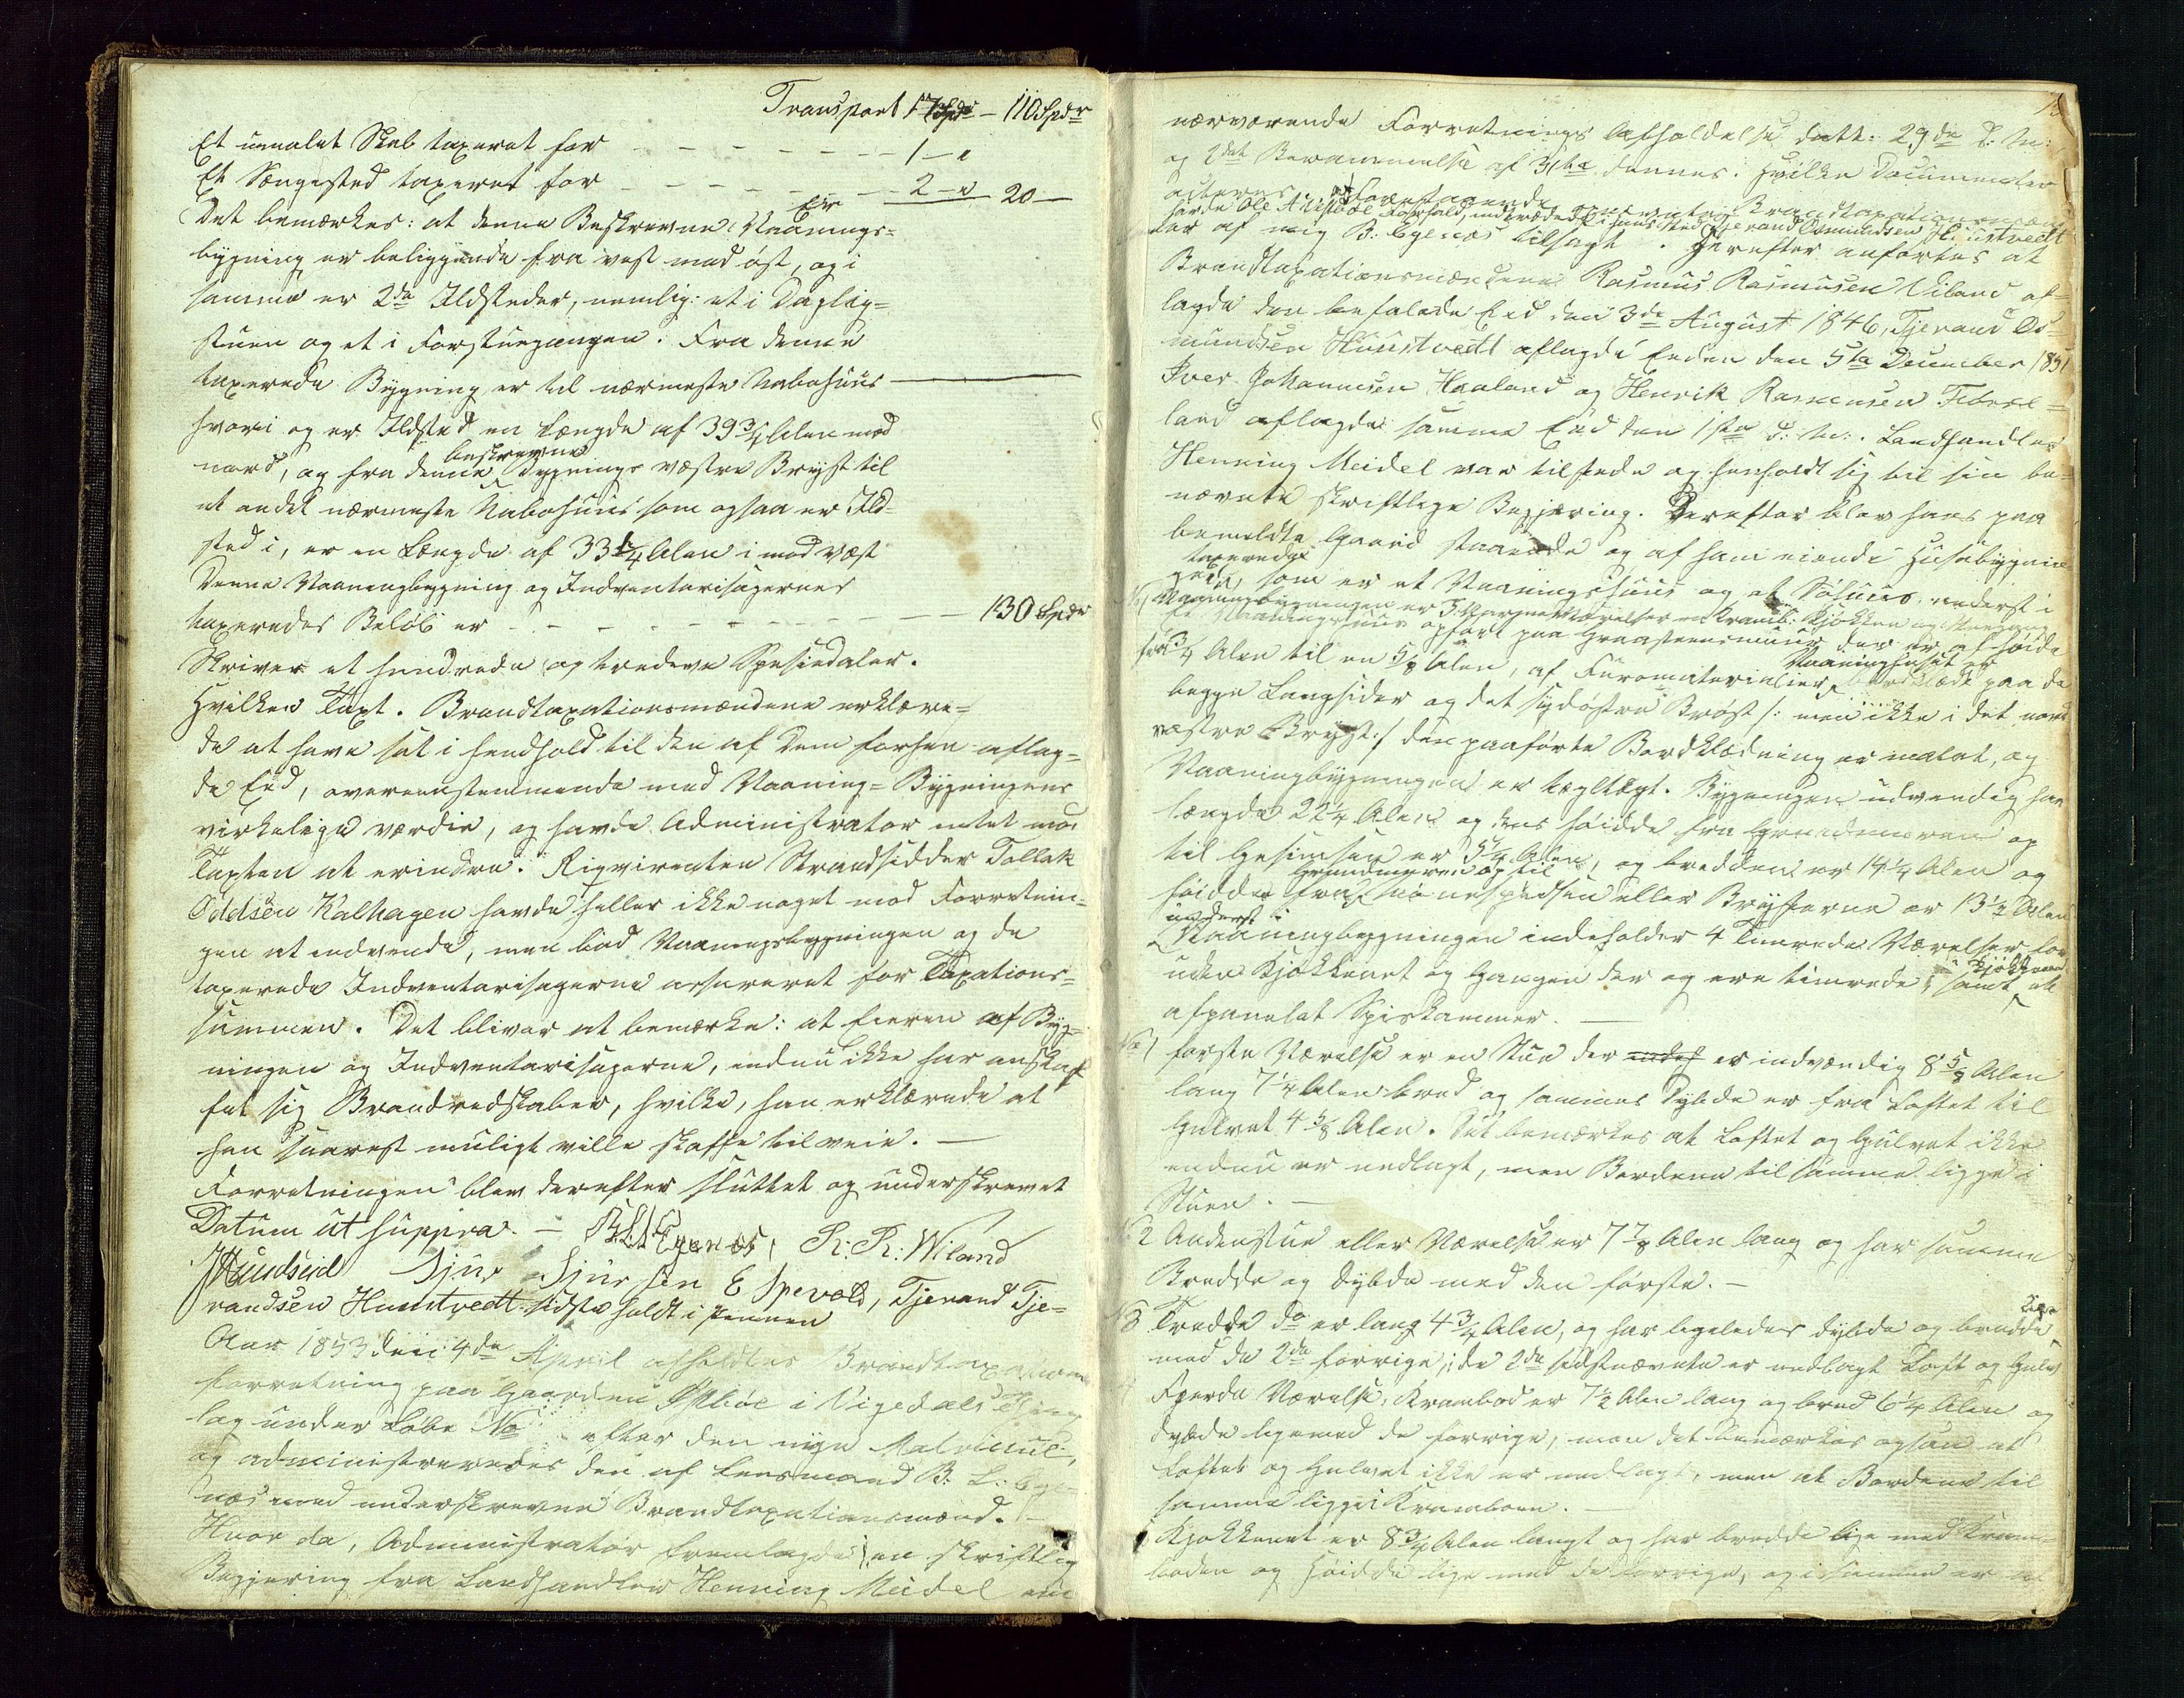 Transport 17 Spdr – 110 Spdr
Et umalet Skab taxeret for – – – – – – – 1 – "
Et Sængested taxeret for – – – – – – 2 – " – 20 –
Det bemærkes: at denne Beskrevne Vaanings=
bygning er beliggende fra vest med øst, og i
samme er 2de Ildsteder, nemlig: et i Daglig=
stuen og et i Forstuegangen. Fra denne
taxerede Bygning er til nærmeste Nabohuus
hvori og er Ildsted en Længde af 39 3/4 Alen mod
nord, og fra denne beskrevne Bygnings væstre Bryst til
et andet nærmeste Nabohuus som ogsaa er Ild=
sted i, er en Længde af 33 1/4 Alen i mod væst
Denne Vaaningbygning og Indventarisagernes
taxeredes Beløb er – – – – – – – – 130 Spdr
Skriver et hundrede og tredeve Spesiedaler.
Hvilken Taxt. Brandtaxationsmændene erklære=
de at have sat i hendhold til den af Dem forhen aflag=
de Eed, overeenstemmende med Vaaning=Bygningens
virkelige værdie, og havde Administrator intet mod
Taxten at erindre. Riqvirenten Strandsidder Tollak
Oddsen Kalhagen havde heller ikke noget mod Forretnin=
gen at indvende, men bad Vaaningsbygningen og de
taxerede Indventarisagerne assureret for Taxations=
summen. Det bliver at bemærke: at Eieren af Byg=
ningen og Indventarisagerne, endnu ikke har anskaf
fet sig Brandredskaber, hvilke, han erklærede at
han snarest muligt ville skaffe tilveie. –
Forretningen blev derefter sluttet og underskrevet
Datum ut suppra. – B. L. Egenæs, R: R: Wiland
Sjur Sjursen Espevold, Tjerand Tje=
randsen Hunstvedt sidste holdt i pennen
Aar 1853 den 4de April afholdtes Brandtaxations
forretning paa Gaarden Østbøe i Vigedals Thing
lag under Løbe No efter den nye Matricul,
og administreredes den af Lensmand B: L: Ege=
næs med underskrevne Brandtaxationsmænd. –
Hvor da, Administrator fremlagde en skriftlig
Begjering fra Landhandler Henning Meidel om
nærværende Forretnings Afholdelse datt: 29de d: M:
og 2det Berammelse af 31te dennes: Hvilke Documenter
Tjerand Osmundsen Hunstvedt
er af mig B: Egenæs tilsagt. Herefter anførtes at
Brandtaxationsmændene Rasmus Rasmusen Viland af=
lagde den befalede Eed den 3de August 1846, Tjerand Os=
mundsen Hunstvedt aflagde Eeden den 5te December 1851
Iver Johannesen Haaland og Henrik Rasmusen
land aflagde samme Eed den 1ste d: M:. Landhandler
Henning Meidel var tilstede og henholdt sig til sin be=
nævnte skriftlige Begjæring. Derefter blev hans paa
bemeldte Gaard staaende og af ham eiende Huusebygnin=
ger taxerede, som er et Vaaningshuus og et Søhuus, underst i
Vaaningbygningen er 3 Værelser en Krambod, Kjøkken og
Et Vaaningshuus opført paa Graasteensmuur der er af høide
fra 3/4 Alen til en 5/8 Alen, af Furomaterialier, Vaaninghuset er bordklædt paa de
begge Langsider og det sydøstre Brøst /: men ikke i det nord
væstre Bryst:/ den paaførte Bordklædning er malet, og
Vaaningbygningen er tægltægt. Bygningen udvendig har
længde 22 1/4 Alen og dens høidde fra Grundmuren op
til Gesimsen er 5 1/4 Alen, og bredden er 14 1/4 Alen og
høidden fra Grundmuren op til eller Brysterne er 13 1/2 Alen
underst i Vaaningbygningen indeholder 4 Timrede Værelser for
uden Kjøkkenet og Gangen der og ere timrede, samt et
afpanelet Spiskammer. –
No 1 første Værelse er en Stue der er indvændig 8 5/8 Alen
lang 7 1/4 Alen bred og sammes Dybde er fra Loftet til
Gulvet 4 5/8 Alen. Det bemærkes at Loftet og Gulvet ikke
endnu er nedlagt, men Bordene til samme ligge i
Stuen. –
No 2 Andenstue eller Værelse er 7 7/8 Alen lang og har samme
Bredde og Dybde med den første. –
No 3 Tredde do er lang 4 3/4 Alen, og har legeledes dybde og bredde lige
med de 2de forrige, i de 2de sidstnævnte er nedlagt Loft og Gulv
Fjerde Værelse, Krambod er 7 1/2 Alen lang og bred 6 1/4 Alen og
dybde ligemed de forrige, men det bemærkes ogsaa at
Loftet og Gulvet ikke er nedlagt, men at Bordene til
samme ligge i Kramboen. –
Kjøkkenet er 8 3/4 Alen langt og har bredde lige med Kram=
boden og høidde lige med de forrige, og i samme er et